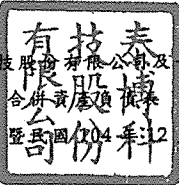 泰博科
技股份
有限公司
技股份有限公司及
合併資產負債表
暨民國 104 年 12